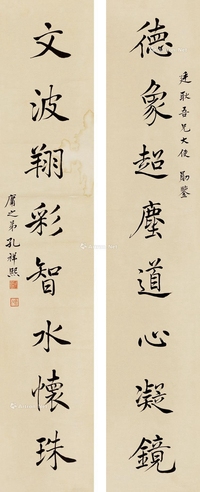 德象超塵道心凝鏡
廷耿吾兄大使勛鑒
文波翔彩智水懷珠
庸之弟孔祥熙